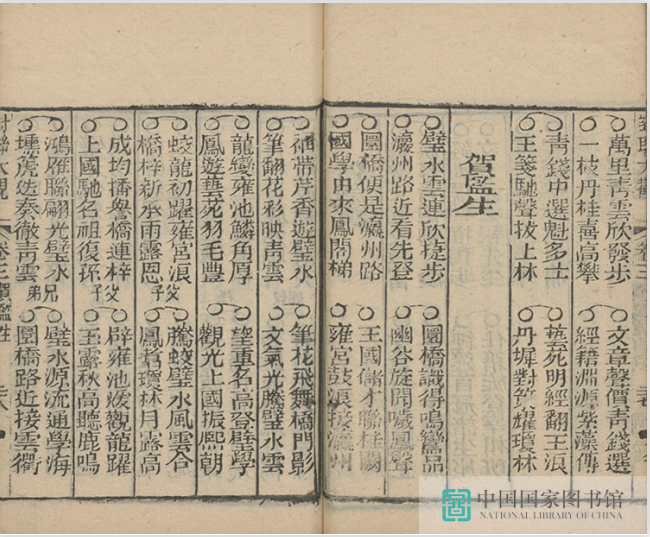 萬里靑雲欣發步
文章聲價靑錢選
一枝丹桂喜高攀
經籍淵源紫藻傳
靑錢中選魁多士
藝苑明經翻玉浪
玉箋馳聲拔上林
丹墀對策耀瓊林
賀監生
璧水雲連欣捷步
圜橋識得鳴鸞品
瀛州路近看先登
幽谷旋聞噦鳳聲
圜橋便是瀛州路
王國儲才聯桂闕
國學由來鳳閣梯
雍宮鼓浪接瀛州
袖帶芹香遊璧水
筆花飛舞橋門影
筆翻花彩映靑雲
文氣光騰璧水雲
龍變雍池鱗角厚
望重名高登璧學
鳳遊華苑羽毛豐
觀光上國振熙朝
蛟龍初躍雍宮浪父
騰蛟璧水風雲合
橋梓新承雨露恩子
鳳翥瓊林月露高
成均播譽橋連梓父
辟雍池煖觀龍躍
上國馳名祖復孫子
玉露秋高聽鹿鳴
鴻雁聯翩光璧水兄
璧水源流通學海
壎篪迭奏徹靑雲弟
圜橋路近接雲衢
對聯大觀 卷三 賀監生
中国国家图书馆
NATIONAL LIBRARY OF CHINA